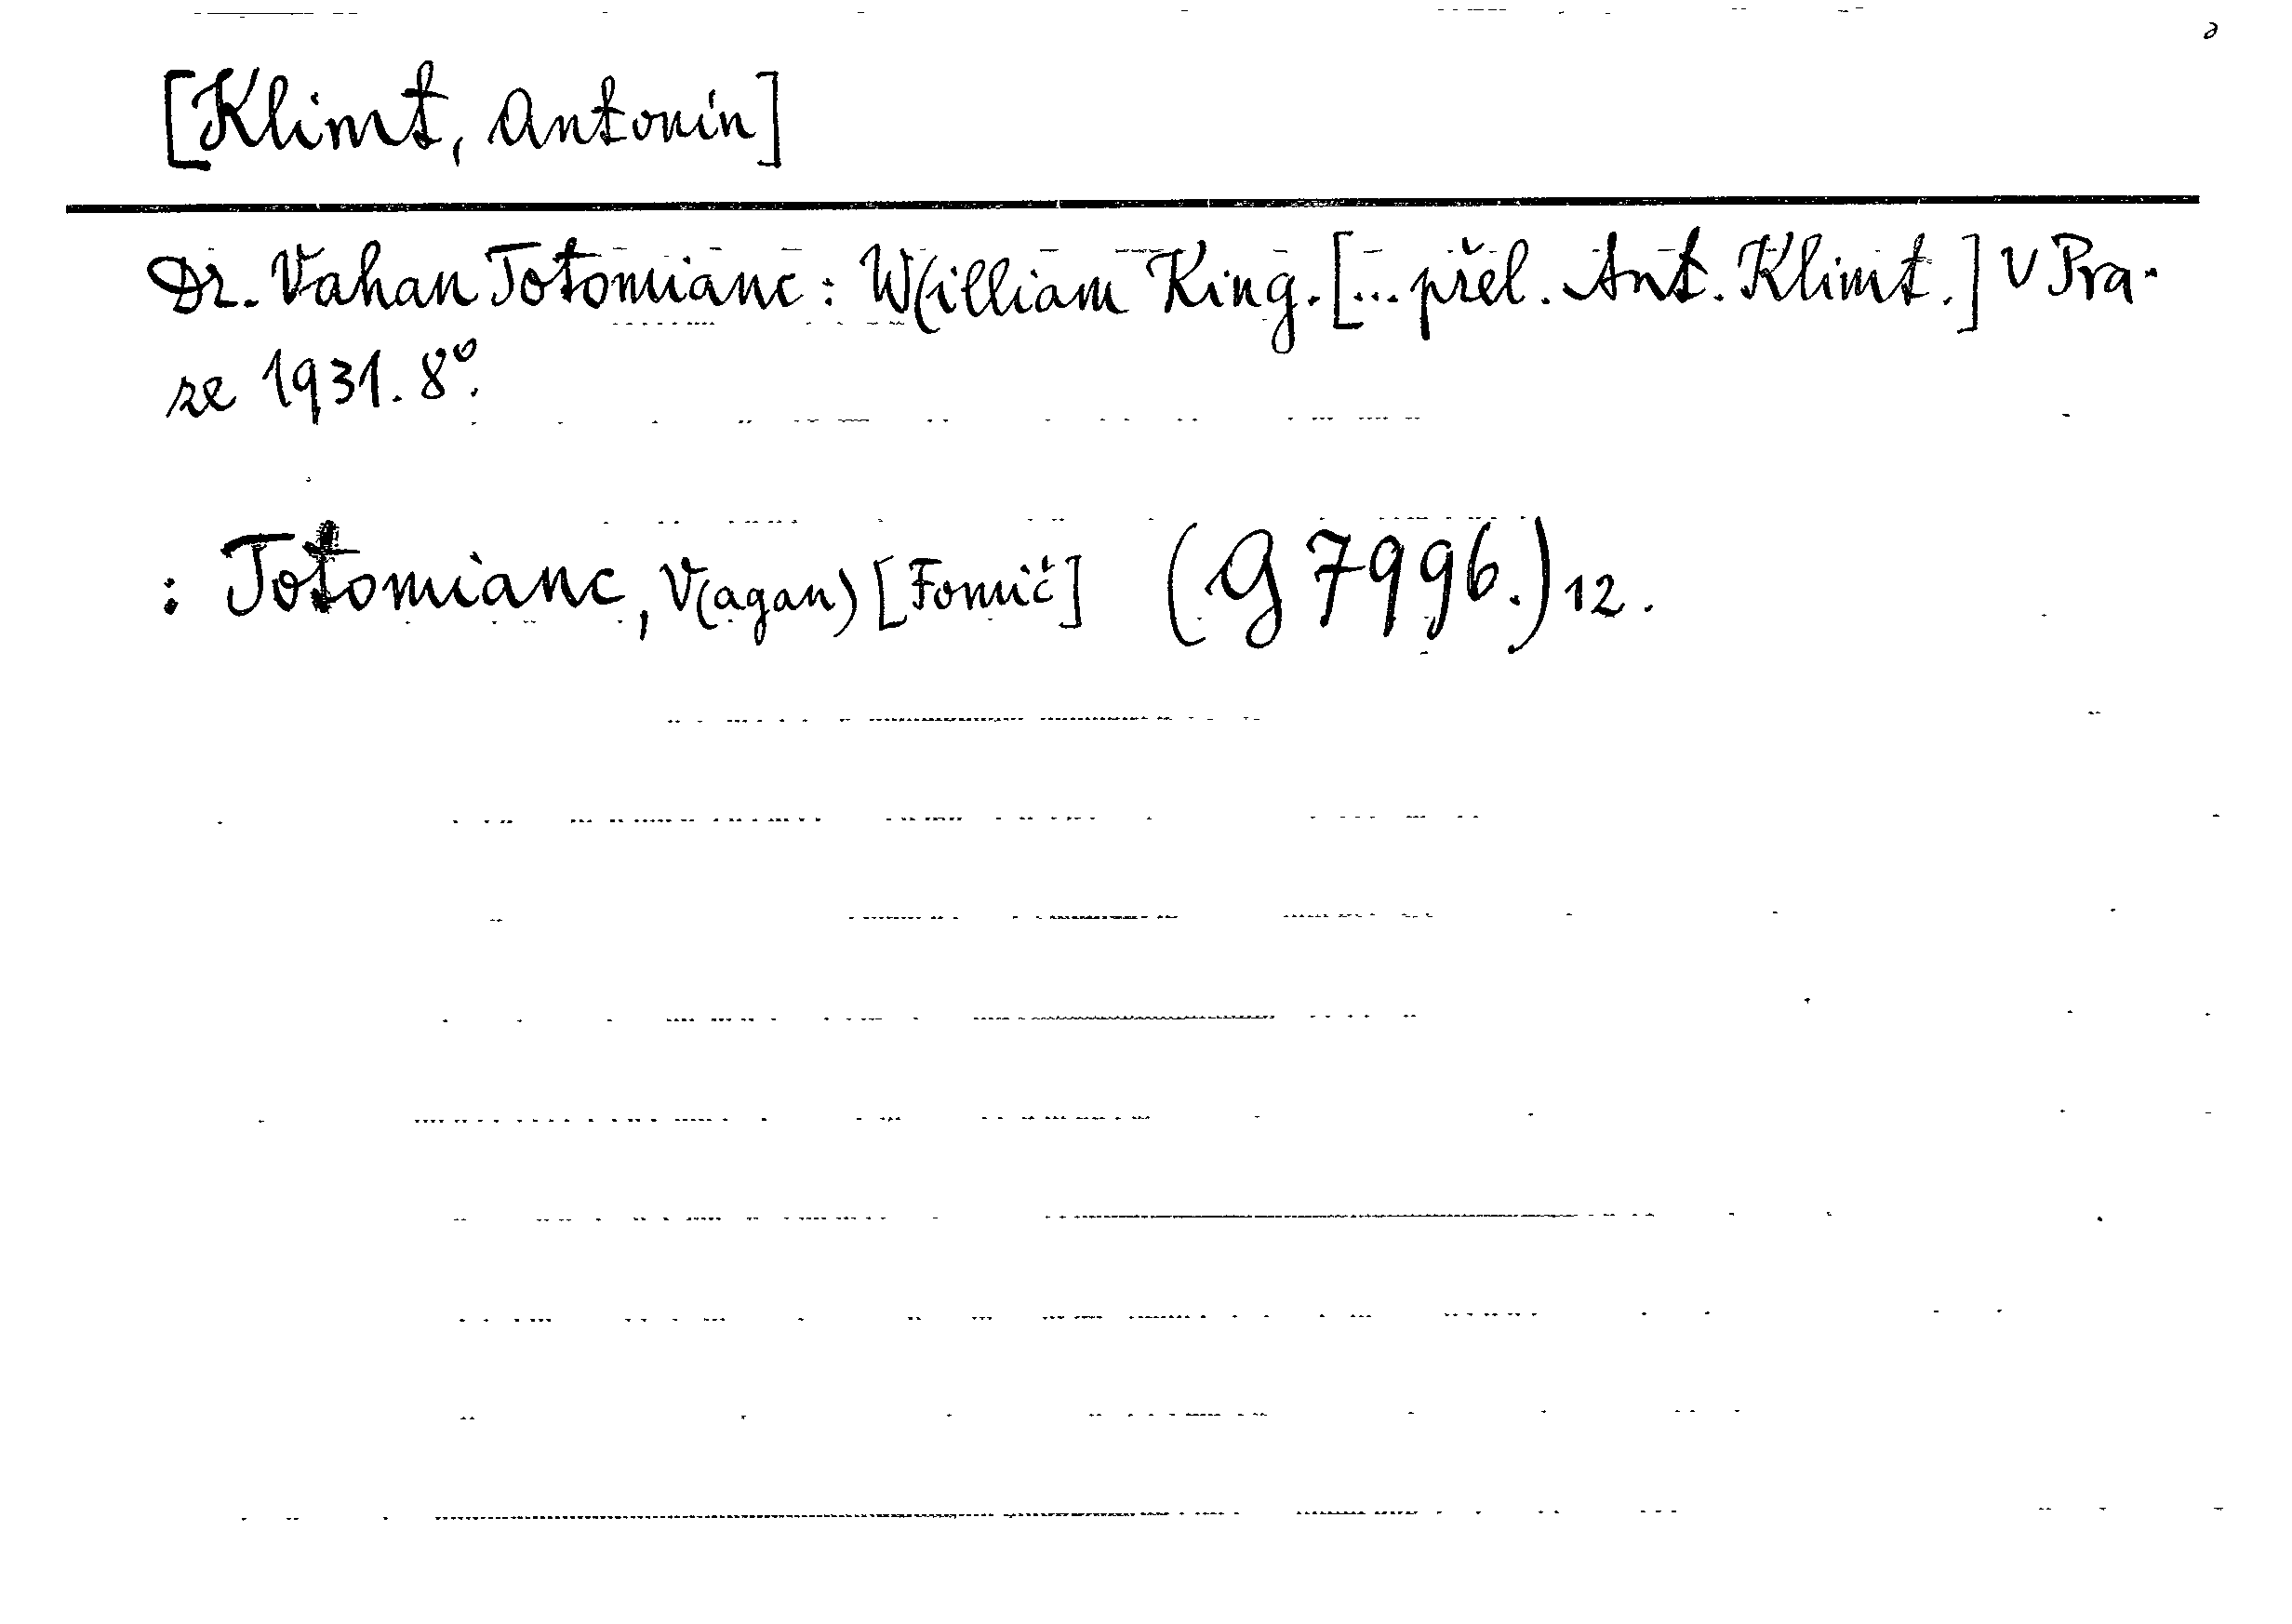 [Klimt, Antonín]
Dr. Vahan Totomianc: W(illiam King. [... přel. Ant. Klimt.] V Pra-
ze 1931. 8º.
: Totomianc, V(agan) [Fomič] (G 7996.) 12.